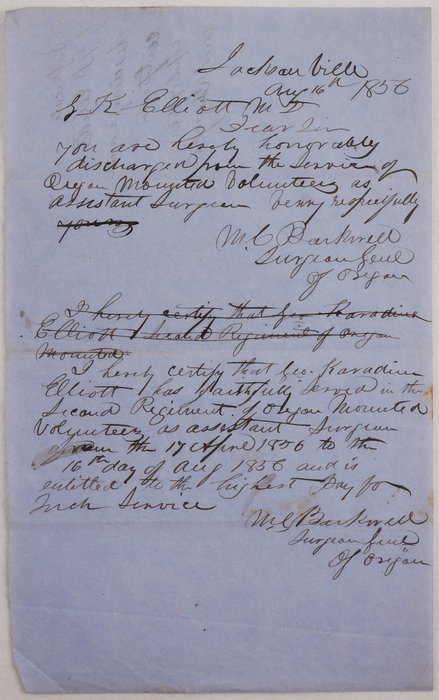 Jackson Ville
Aug 16th 1856
G K Elliott M D
Dear Sir
you are hereby honorably
discharged from the service of
Oregon Mounted Volunteers as
assistant Surgeon verry respectfully
yours
M C Barkwell
Surgeon Genl
Of Oregon
I hereby certify that Geo. Karadine
Elliott Second Regiment of Oregon
Mounted
I hereby certify that Geo. Karadine
Elliott has faithfully served in the
Second Regiment of Oregon Mounted
Volunteers as assistant Surgeon
from the 17 April 1856 to the
16th day of Aug 1856 and is
entitled to the highest Pay for
Such Service
M C Barkwell
Surgeon Genl
Of Oregon